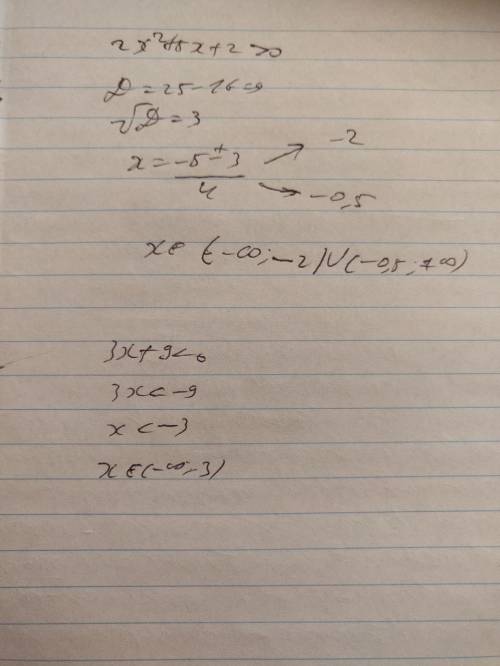 2x²+5x+2>0
D=25-16=9
√D=3
x=-5±3/4 → -2
→ -0,5
x∈ (-∞;-2)∪(-0,5;+∞)
3x+9<0
3x<-9
x<-3
x∈(-∞;-3)